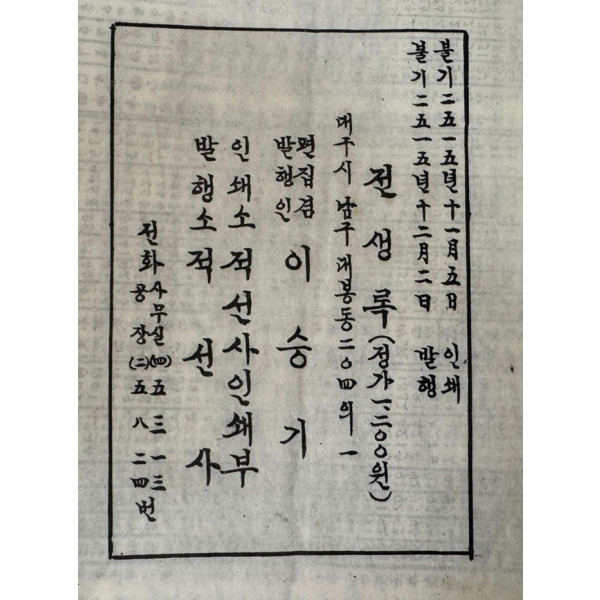 불기二五一五년十一月五日 인쇄
불기二五一五년十二月二日 발행
전생록(정가一、二○○원)
대구시 남구 대봉동二○四의一
편집겸
발행인 이승기
인쇄소 적선사인쇄부
발행소 적선사
전화 사무실(四)五三一三
공장(二)五八二四번